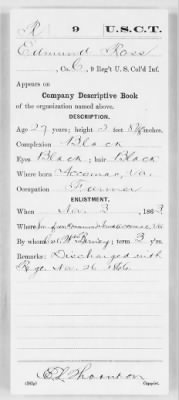 R 9 U.S.C.T.
Edmund Ross
, Co. C, 9 Reg't U.S. Col'd Inf.
Appears on
Company Descriptive Book
of the organization named above.
DESCRIPTION.
Age 27 years; height 5 feet 8 inches.
Complexion Black
Eyes Black; hair Black
Where born Accomac, Va.
Occupation Farmer
ENLISTMENT.
When Nov. 3, 1863
Where
By whom; term 3 y'rs.
Remarks: Discharged with
Reg't Nov. 26 1866
Copyist.